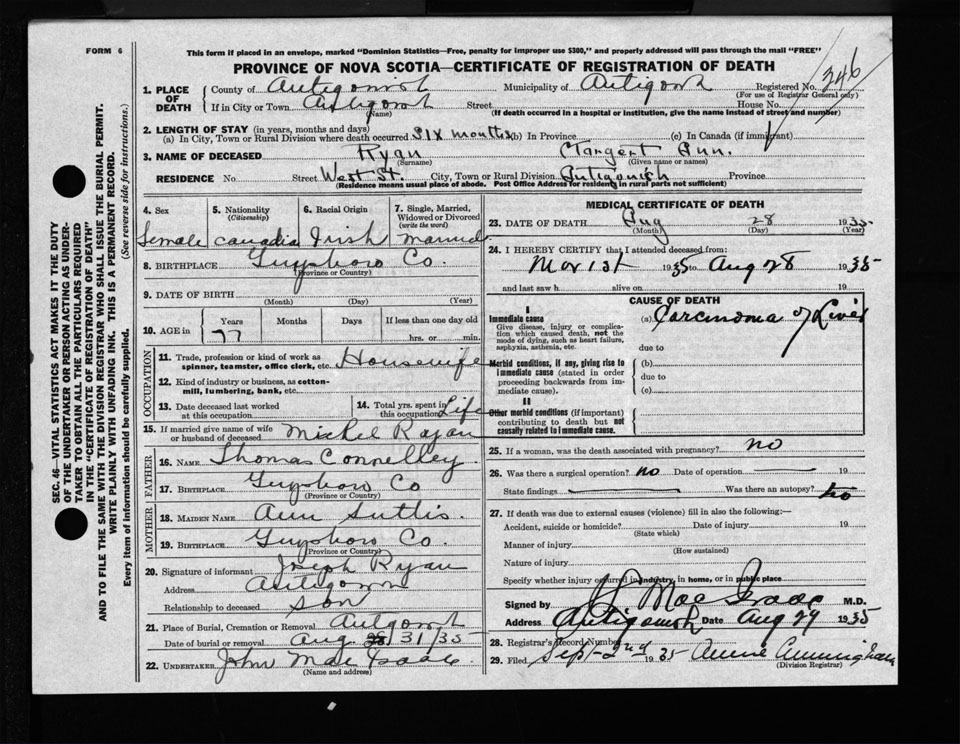 FORM 6
This form if placed in an envelope, marked "Dominion Statistics—Free, penalty for improper use $300," and properly addressed will pass through the mail "FREE"
PROVINCE OF NOVA SCOTIA—CERTIFICATE OF REGISTRATION OF DEATH
1. PLACE OF DEATH
County of Antigonish Municipality of Antigonish Registered No. 346
(For use of Registrar General only)
If in City or Town Antigonish Street House No.
(Name) (If death occurred in a hospital or institution, give the name instead of street and number)
2. LENGTH OF STAY (in years, months and days)
(a) In City, Town or Rural Division where death occurred six months (b) In Province (c) In Canada (if immigrant)
3. NAME OF DECEASED Ryan Margert Ann.
(Surname) (Given name or names)
RESIDENCE No. Street West St. City, Town or Rural Division Antigonish Province
(Residence means usual place of abode. Post Office Address for residents in rural parts not sufficient)
SEC. 46—VITAL STATISTICS ACT MAKES IT THE DUTY
OF THE UNDERTAKER OR PERSON ACTING AS UNDER-
TAKER TO OBTAIN ALL THE PARTICULARS REQUIRED
IN THE "CERTIFICATE OF REGISTRATION OF DEATH"
AND TO FILE THE SAME WITH THE DIVISION REGISTRAR WHO SHALL ISSUE THE BURIAL PERMIT.
WRITE PLAINLY WITH UNFADING INK. THIS IS A PERMANENT RECORD.
Every item of information should be carefully supplied. (See reverse side for instructions.)
4. Sex 5. Nationality (Citizenship) 6. Racial Origin 7. Single, Married, Widowed or Divorced (write the word)
Female Canadia Irish married
8. BIRTHPLACE Guysboro Co.
(Province or Country)
9. DATE OF BIRTH
(Month) (Day) (Year)
10. AGE in Years Months Days If less than one day old
77 hrs. or min.
OCCUPATION
11. Trade, profession or kind of work as spinner, teamster, office clerk, etc. Housewife
12. Kind of industry or business, as cotton-mill, lumbering, bank, etc.
13. Date deceased last worked at this occupation
14. Total yrs. spent in this occupation Life
15. If married give name of wife or husband of deceased Michel Rayan
FATHER
16. NAME Thomas Connelley
17. BIRTHPLACE Guysboro Co
(Province or Country)
MOTHER
18. MAIDEN NAME Ann Suttis.
19. BIRTHPLACE Guysboro Co.
(Province or Country)
20. Signature of informant Joseph Ryan
Address
Relationship to deceased son
21. Place of Burial, Cremation or Removal
Date of burial or removal Aug. 31/35
22. UNDERTAKER John Mac Isaac
(Name and address)
MEDICAL CERTIFICATE OF DEATH
23. DATE OF DEATH Aug 28 1935
(Month) (Day) (Year)
24. I HEREBY CERTIFY that I attended deceased from:
Mar 1st 1935 to Aug 28 1935
and last saw h alive on 19
CAUSE OF DEATH
I
Immediate cause
Give disease, injury or complication which caused death, not the mode of dying, such as heart failure, asphyxia, asthenia, etc.
(a) Carcinoma of Liver
due to
Morbid conditions, if any, giving rise to immediate cause (stated in order proceeding backwards from immediate cause).
(b)
due to
(c)
II
Other morbid conditions (if important) contributing to death but not causally related to immediate cause.
25. If a woman, was the death associated with pregnancy? no
26. Was there a surgical operation? no Date of operation 19
State findings Was there an autopsy? no
27. If death was due to external causes (violence) fill in also the following:—
Accident, suicide or homicide? Date of injury 19
(State which)
Manner of injury
(How sustained)
Nature of injury
Specify whether injury occurred in industry, in home, or in public place
Signed by J. Mac Isaac M.D.
Address Antigonish Date Aug 29 1935
28. Registrar's Record Number
29. Filed Sept-2nd 1935 Annie Cunningham
(Division Registrar)